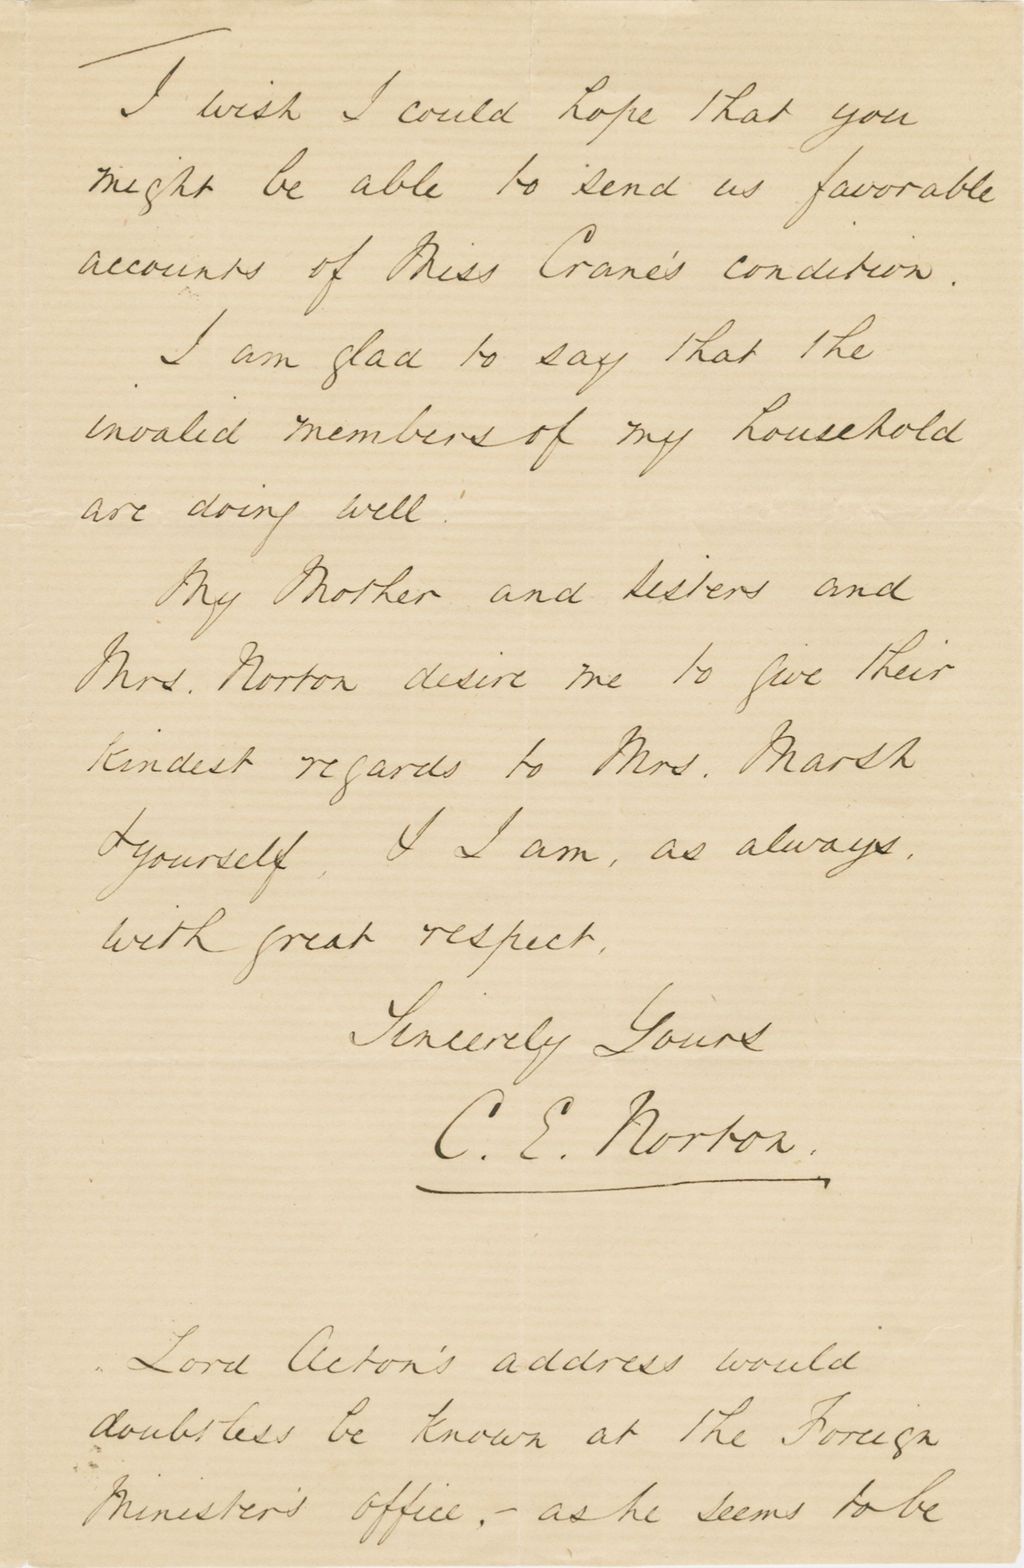 I wish I could hope that you
might be able to send us favorable
accounts of Miss Crane's condition.
I am glad to say that the
invalid members of my household
are doing well.
My Mother and sisters and
Mrs. Norton desire me to give their
kindest regards to Mrs. Marsh
& yourself, & I am, as always,
with great respect,
Sincerely Yours
C. E. Norton.
Lord Acton's address would
doubtless be known at the Foreign
Minister's office, - as he seems to be